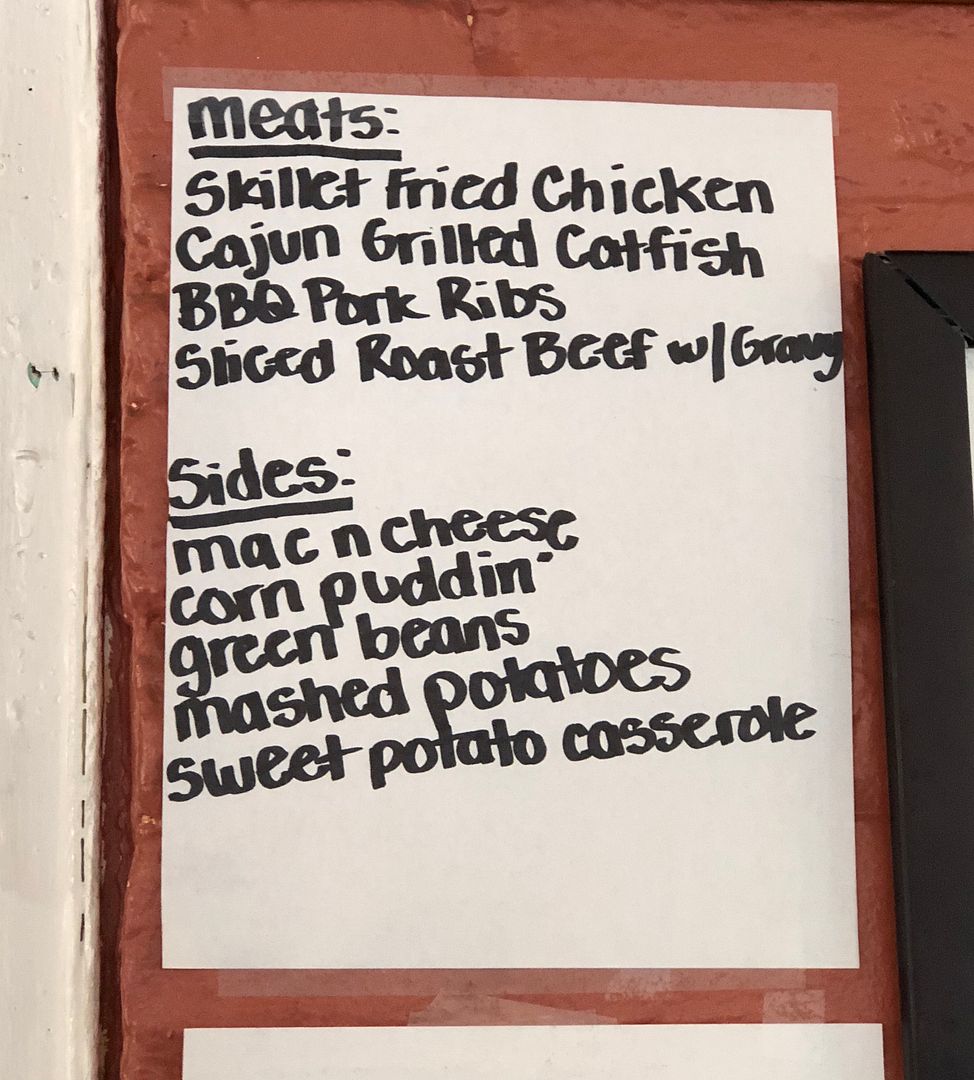 meats:
Skillet Fried Chicken
Cajun Grilled Catfish
BBQ Pork Ribs
Sliced Roast Beef w/Gravy
Sides:
mac n cheese
corn puddin'
green beans
mashed potatoes
sweet potato casserole